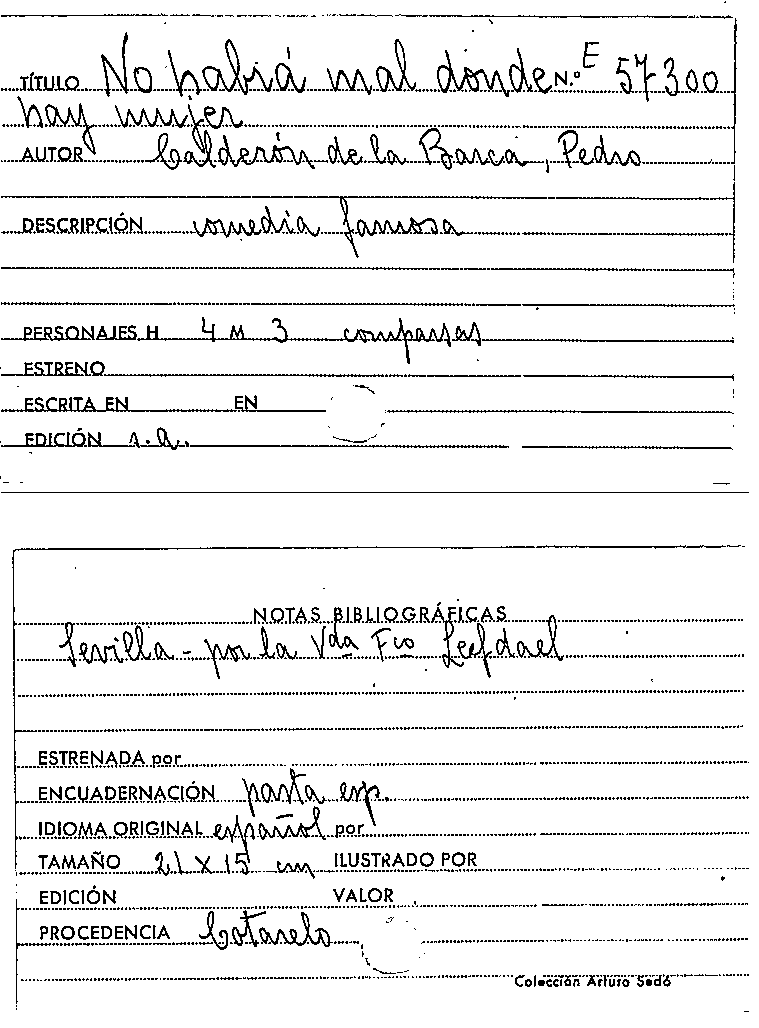 TÍTULO No habrá mal donde N.º E 57300
hay mujer
AUTOR Calderón de la Barca, Pedro
DESCRIPCIÓN comedia famosa
PERSONAJES H 4 M 3 comparsas
ESTRENO
ESCRITA EN EN
EDICIÓN s.a.
NOTAS BIBLIOGRÁFICAS
Sevilla - por la Vda Fco Leefdael
ESTRENADA por
ENCUADERNACIÓN pasta esp.
IDIOMA ORIGINAL español por
TAMAÑO 21 x 15 cm ILUSTRADO POR
EDICIÓN VALOR
PROCEDENCIA Cotarelo
Colección Arturo Sedó